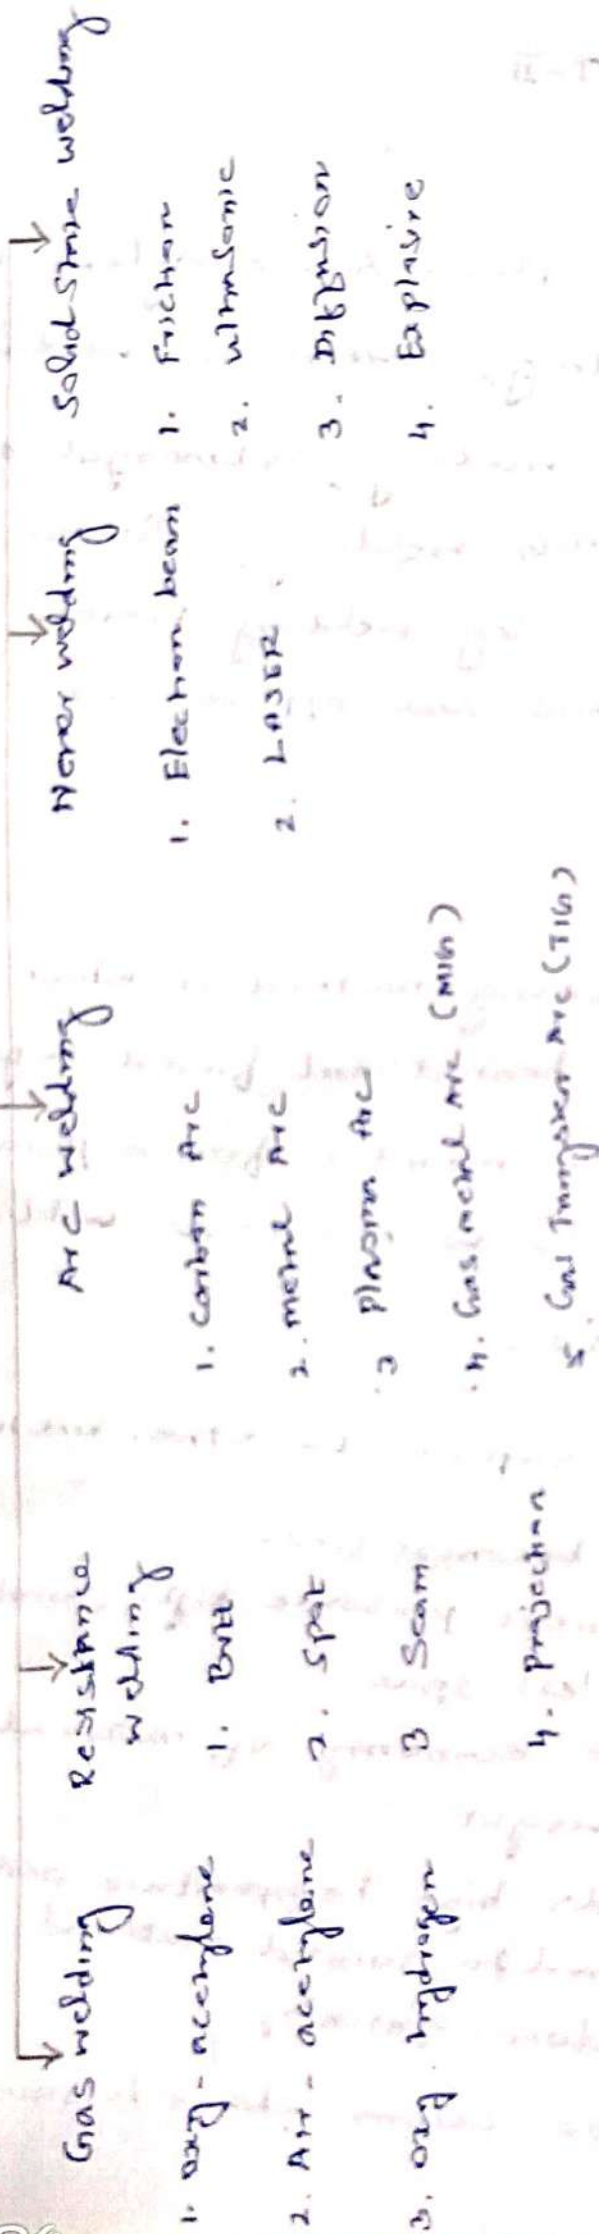 Gas welding
1. oxy - acetylene
2. Air - acetylene
3. oxy. hydrogen
Resistance
welding
1. Butt
2. Spot
3 Seam
4. projection
Arc welding
1. Carbon Arc
2. metal Arc
3 plasma Arc
4. Gas metal Arc (MIG)
5. Gas Tungsten Arc (TIG)
Newer welding
1. Electron beam
2. LASER
Solid State welding
1. Friction
2. ultrasonic
3. Diffusion
4. Explosive